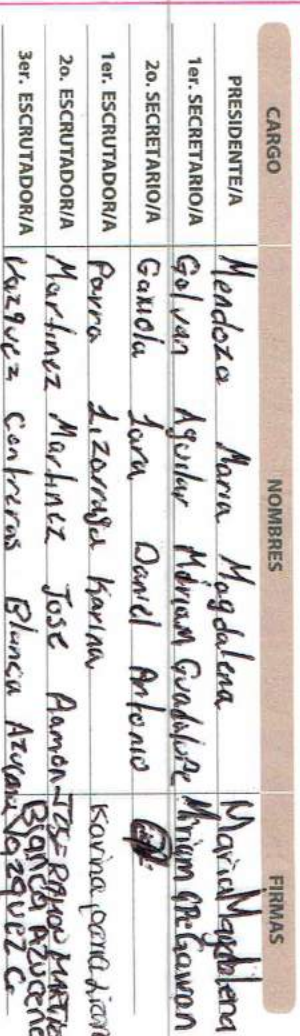 CARGO NOMBRES FIRMAS
PRESIDENTE/A Mendoza Maria Magdalena Maria Magdalena
1er. SECRETARIO/A Galvan Aguilar Miriam Guadalupe Miriam
2o. SECRETARIO/A Gaxiola Lara Daniel Antonio
1er. ESCRUTADOR/A Parra Lizarraga Karina Karina parra
2o. ESCRUTADOR/A Martinez Martinez Jose Ramon JOSE RAMON MARTINE
3er. ESCRUTADOR/A Vazquez Contreras Blanca Azucena Blanca Azucena Vazquez C